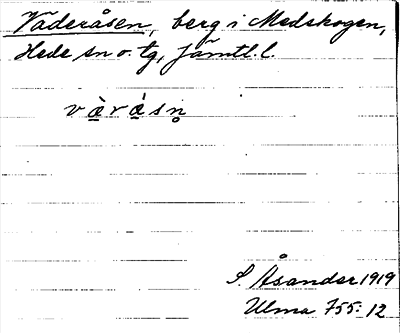 Väderåsen, berg i Medskogen,
Hede sn o. tg, Jämtl. l.
và̤rá̤sn̥
S. Åsander 1919
Ulma 755:12